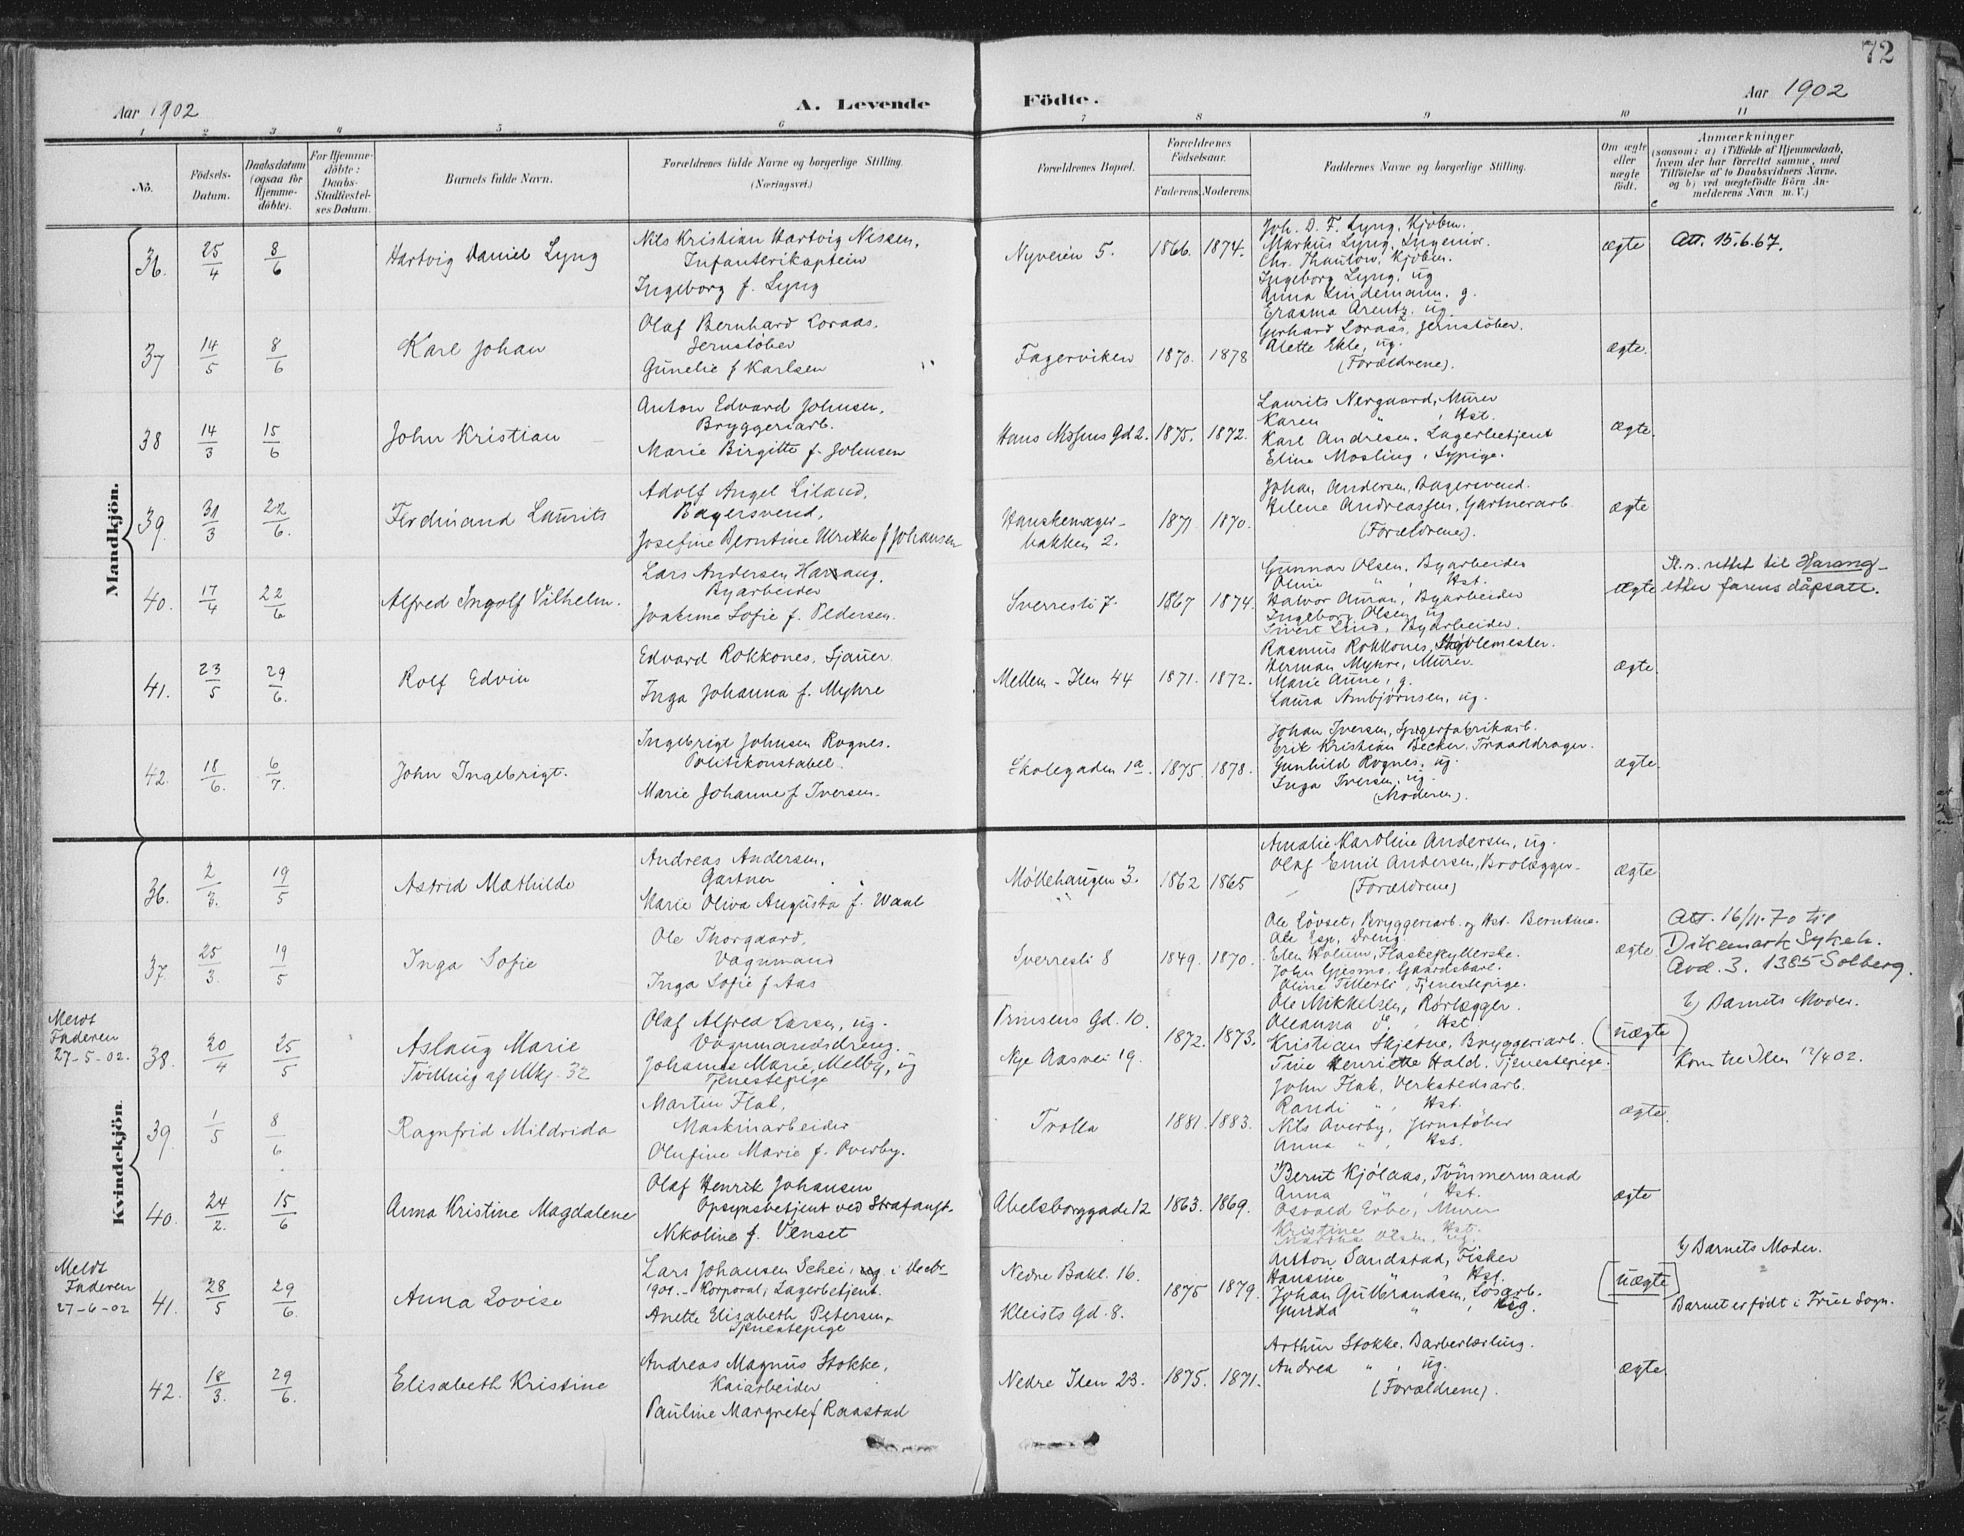 72
Aar 1902
A. Levende
Födte.
Aar 1902
1 2 3 4 5 6 7 8 9 10 11
No.
Födsels-
Datum.
Daabsdatum
(ogsaa for
Hjemme-
döbte).
For Hjemme-
döbte:
Daabs-
Stadfæstel-
ses Datum.
Barnets fulde Navn.
Forældrenes fulde Navne og borgerlige Stilling.
(Næringsvei.)
Forældrenes Bopæl.
Forældrenes
Födselsaar.
Faderens. Moderens.
Faddernes Navne og borgerlige Stilling.
Om ægte
eller
uægte
født.
Anmærkninger
(saasom: a) i Tilfælde af Hjemmedaab,
hvem der har forrettet samme, med
Tilföielse af to Daabsvidners Navne,
og b) ved uægtefödte Börn An-
melderens Navn m. V.)
Mandkjön.
36. 25/4 8/6 Hartvig Daniel Lyng
Nils Kristian Hartvig Nissen,
Infanterikaptein
Ingeborg f. Lyng
Nyveien 5. 1866. 1874.
Joh. D. F. Lyng, Kjøbm.
Markus Lyng, Ingeniør.
Chr. Thaulow, Kjøbm.
Ingeborg Lyng, ug
Anna Lindemann, g.
Erasma Arentz, ug.
ægte Att. 15.6.67.
37 14/5 8/6 Karl Johan
Olaf Bernhard Loraas,
Jernstøber
Gunelie f Karlsen
Fagerviken 1870. 1878
Gerhard Loraas, Jernstøber.
Alette Ekle, ug.
(Forældrene).
ægte.
38 14/3 15/6 John Kristian
Anton Edvard Johnsen,
Bryggeriarb.
Marie Birgitte f. Johnsen
Hans Mosens Gd 2. 1875. 1872.
Laurits Nergaard, Murer
Karen " , Hst.
Karl Andresen, Lagerbetjent
Eline Mosling, Sypige.
ægte.
39. 31/3 22/6. Ferdinand Laurits
Adolf Angel Liland,
Bagersvend,
Josefine Berntine Ulrikke f Johansen
Hanskemager-
bakken 2. 1871 1870.
Johan Andersen, Bagersvend.
Helene Andreassen, Gartnerarb.
(Forældrene).
ægte
40. 17/4 22/6 Alfred Ingolf Vilhelm.
Lars Andersen Harang,
Byarbeider
Joakime Sofie f. Pedersen.
Sverresli 7. 1867 1874.
Gunnar Olsen, Byarbeider
Oline " , Hst.
Halvor Aunan, Byarbeider
Ingeborg Olsen, ug
Sivert Lind, Byarbeider.
ægte
St.n. rettet til Harang
etter farens dåpsatt.
41. 23/5 29/6. Rolf Edvin
Edvard Rokkones, Sjauer
Inga Johanna f. Myhre
Mellem-Ilen 44 1871. 1872.
Rasmus Rokkones, Høvlemester.
Herman Myhre, Murer.
Marie Aune, g.
Laura Arnbjørnsen, ug.
ægte.
42. 18/6. 6/7. John Ingebrigt.
Ingebrigt Johnsen Rognes.
Politikonstabel.
Marie Johanne f. Iversen.
Skolegaden 1a. 1875. 1878.
Johan Iversen, Spigerfabrikarb.
Erik Kristian Becker, Traaddrager.
Gunhild Rognes, ug.
Inga Iversen, ug.
(Moderen).
ægte.
Kvindekjön.
36. 2/3. 19/5 Astrid Mathilde
Andreas Andersen,
Gartner
Marie Oliva Augusta f. Waal
Møllehaugen 3. 1862 1865
Amalie Karoline Andersen, ug.
Olaf Emil Andersen, Brolægger
(Forældrene)
ægte.
37. 25/3. 19/5 Inga Sofie
Ole Thorgaard,
Vognmand
Inga Sofie f Aas
Sverresli 8 1849. 1870.
Ole Løvset, Bryggeriarb. og Hst. Berntine.
Ole Esp, Dreng.
Ellen Holum, Flaskeskyllerske.
John Gjesmo, Gaardsbarl.
Oline Tillerli, Tjenestepige.
ægte
Att. 16/11.70 til
Dikemark Sykeh.
Avd. 3. 1385 Solberg.
Meldt
Faderen
27-5-02.
38. 20/4 25/5 Aslaug Marie
Tvilling af Mkj. 32
Olaf Alfred Larsen, ug.
Vognmandsdreng.
Johanna Marie Melby, ug
Tjenestepige
Prinsens Gd. 10.
Nye Aasvei 19. 1872. 1873.
Ole Mikkelsen, Rørlægger
Oleanna do, Hst.
Kristian Skjetne, Bryggeriarb.
Tine Henriette Hald, Tjenestepige.
(uægte)
b) Barnets Moder.
Kom til Ilen 12/4 02.
39. 1/5 8/6 Ragnfrid Mildrida
Martin Flak,
Maskinarbeider
Olufine Marie f. Overby.
Trolla 1881. 1883.
John Flak, Verkstedsarb.
Randi " , Hst.
Nils Overby, Jernstøber
Anna " , Hst.
ægte.
40. 24/2. 15/6 Anna Kristine Magdalene
Olaf Henrik Johansen
Opsynsbetjent ved Strafanst.
Nikoline f. Venset
Abelsborggade 12 1863. 1869.
Bernt Kjølaas, Tømmermand
Anna " , Hst.
Osvald Erbe, Murer
Kristine , Hst.
Olsen, ug.
ægte
Meldt
Faderen
27-6-02
41. 28/5 29/6. Anna Lovise
Lars Johansen Schei, ug. i Decbr
1901. - Korporal, Lagerbetjent.
Anette Elisabeth Petersen,
Tjenestepige
Nedre Bakl. 16.
Kleists Gd. 8. 1875 1879.
Anton Sandstad, Fisker
Hansine " , Hst.
Johan Gulbrandsen, Løsarb.
Gurida " , ug.
(uægte)
b) Barnets Moder.
Barnet er født i Frue Sogn.
42. 18/3. 29/6. Elisabeth Kristine
Andreas Magnus Stokke,
Kaiarbeider
Pauline Margrete f Raastad
Nedre Ilen 23. 1875. 1871.
Arthur Stokke, Barberlærling.
Andrea " , ug.
(Forældrene).
ægte.